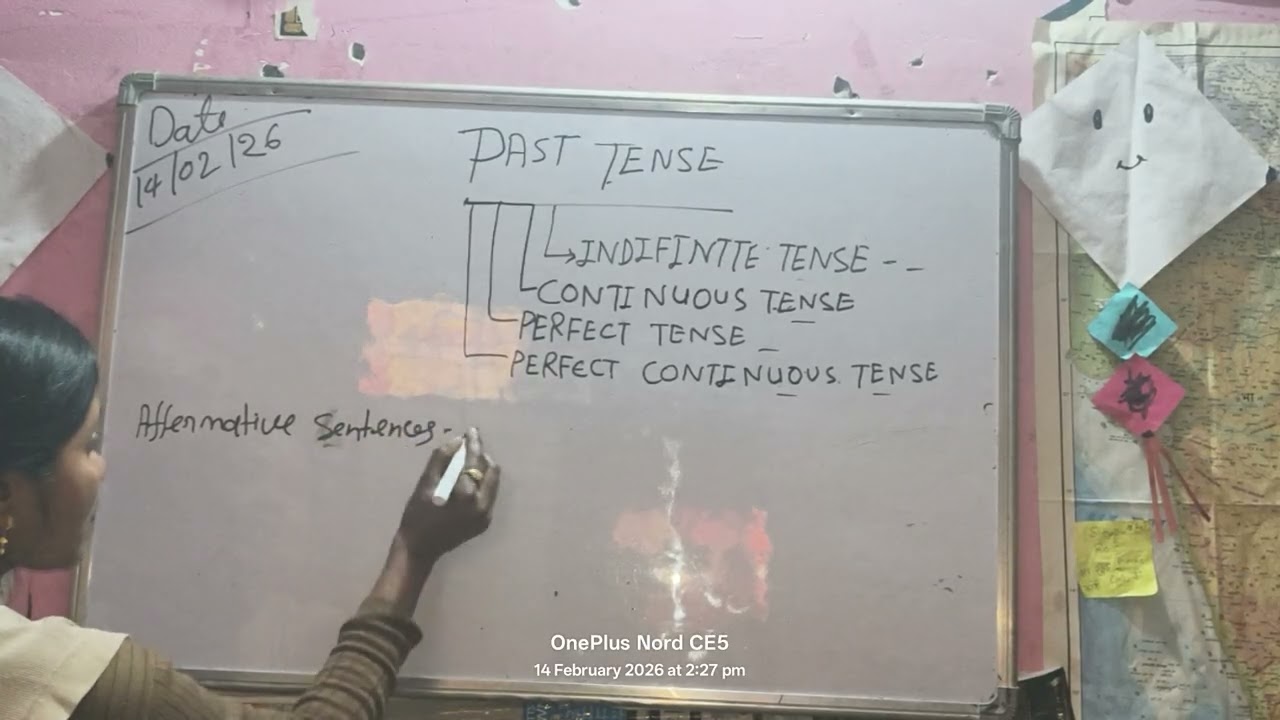 Date
14/02/26
PAST TENSE
INDIFINTTE TENSE - -
CONTINUOUS TENSE
PERFECT TENSE
PERFECT CONTINUOUS TENSE
Affermative Sentences -
OnePlus Nord CE5
14 February 2026 at 2:27 pm